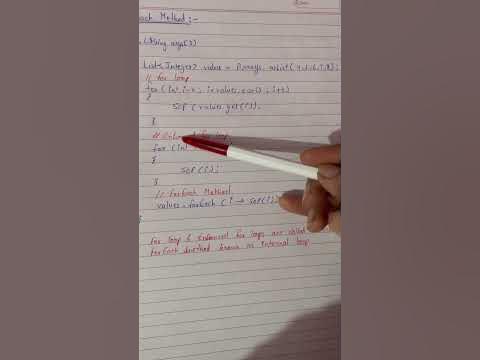 Each Method :-
String args[])
List<Integer> value = Arrays. aslist(
// for loop
for (int i=0; i<values.size() ; i++)
{
sop (values.get(i));
}
for (int
{
sop (i);
}
// forEach Method
values . forEach ( i → sop(i))
}
for loop & enhanced for loops are called
forEach method known as internal loop